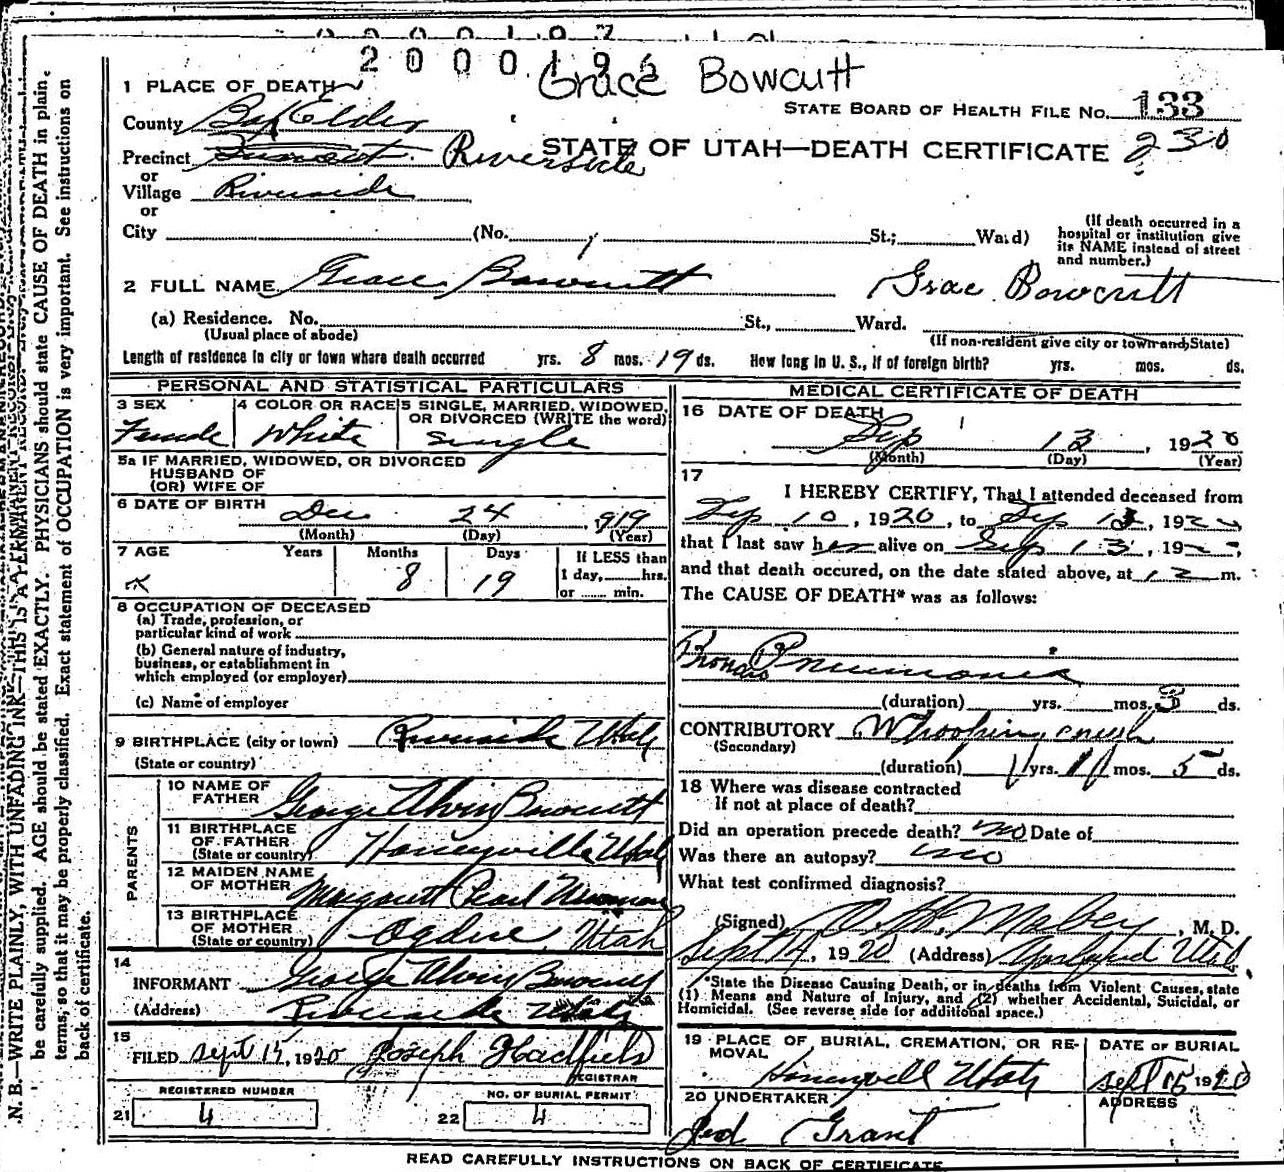 2000196
Grace Bowcutt
1 PLACE OF DEATH
STATE BOARD OF HEALTH FILE NO. 133
County Box Elder
STATE OF UTAH—DEATH CERTIFICATE 230
Precinct Riverside
or
Village Riverside
or
City (No. St.; Ward)
(If death occurred in a hospital or institution give its NAME instead of street and number.)
2 FULL NAME Grace Bowcutt Grace Bowcutt
(a) Residence. No. St., Ward.
(Usual place of abode) (If non-resident give city or town and State)
Length of residence in city or town where death occurred yrs. 8 mos. 19 ds. How long in U. S., if of foreign birth? yrs. mos. ds.
PERSONAL AND STATISTICAL PARTICULARS
3 SEX Female
4 COLOR OR RACE White
5 SINGLE, MARRIED, WIDOWED, OR DIVORCED (WRITE the word) Single
5a IF MARRIED, WIDOWED, OR DIVORCED
HUSBAND OF
(OR) WIFE OF
6 DATE OF BIRTH Dec 24, 1919
(Month) (Day) (Year)
7 AGE Years Months 8 Days 19
If LESS than
1 day, hrs.
or min.
8 OCCUPATION OF DECEASED
(a) Trade, profession, or
particular kind of work
(b) General nature of industry,
business, or establishment in
which employed (or employer)
(c) Name of employer
9 BIRTHPLACE (city or town) Riverside Utah
(State or country)
PARENTS
10 NAME OF FATHER George Alvin Bowcutt
11 BIRTHPLACE OF FATHER Honeyville Utah
(State or country)
12 MAIDEN NAME OF MOTHER Margarett Pearl
13 BIRTHPLACE OF MOTHER Ogden, Utah
(State or country)
14
INFORMANT George Alvin Bowcutt
(Address) Riverside Utah
15
FILED Sept 15, 1920 Joseph Hadfield
REGISTRAR
REGISTERED NUMBER
21 4
NO. OF BURIAL PERMIT
22 4
MEDICAL CERTIFICATE OF DEATH
16 DATE OF DEATH
Sep 13, 1920
(Month) (Day) (Year)
17
I HEREBY CERTIFY, That I attended deceased from
Sep 10, 1920, to Sep 13, 192
that I last saw her alive on Sep 13, 19
and that death occured, on the date stated above, at 12 m.
The CAUSE OF DEATH* was as follows:
Bronco Pneumonia
(duration) yrs. mos. 3 ds.
CONTRIBUTORY Whooping cough
(Secondary)
(duration) yrs. mos. 5 ds.
18 Where was disease contracted
If not at place of death?
Did an operation precede death? no Date of
Was there an autopsy? no
What test confirmed diagnosis?
(Signed) , M. D.
Sept 14, 1920 (Address) Garland Utah
*State the Disease Causing Death, or in deaths from Violent Causes, state
(1) Means and Nature of Injury, and (2) whether Accidental, Suicidal, or
Homicidal. (See reverse side for additional space.)
19 PLACE OF BURIAL, CREMATION, OR REMOVAL
Honeyvill Utah
DATE OF BURIAL
Sept 15 1920
20 UNDERTAKER
Jed Grant
ADDRESS
READ CAREFULLY INSTRUCTIONS ON BACK OF CERTIFICATE.
N. B.—WRITE PLAINLY, WITH UNFADING INK—THIS IS A PERMANENT RECORD.
be carefully supplied. AGE should be stated EXACTLY. PHYSICIANS should state CAUSE OF DEATH in plain
terms, so that it may be properly classified. Exact statement of OCCUPATION is very important. See instructions on
back of certificate.